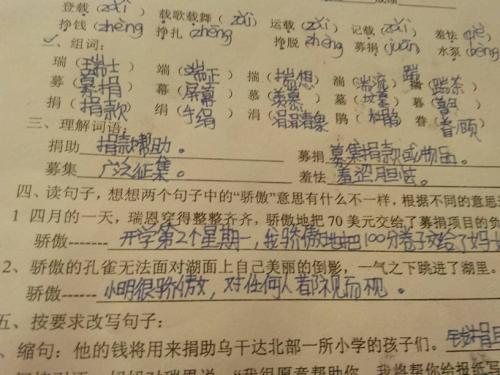 登载（zǎi） 载歌载舞（zài） 运载（zài） 记载（zǎi） 羞怯（qiè）
挣钱（zhèng） 挣扎（zhēng） 挣脱（zhèng） 募捐（juān） 水泵（bèng）
二、组词：
瑞（瑞士） 端（端正） 揣（揣想） 湍（湍流）
募（募捐） 幕（屏幕） 慕（羡慕） 墓（坟墓） 暮（
捐（捐款） 绢（手绢） 涓（涓涓 鹃（杜鹃） 眷（眷顾
三、理解词语：
捐助 捐款帮助。 募捐 募集捐款或物品。
募集 广泛征集。 羞怯 羞涩胆怯。
四、读句子，想想两个句子中的“骄傲”意思有什么不一样，根据不同的意思
1 四月的一天，瑞恩穿得整整齐齐，骄傲地把 70 美元交给了募捐项目的负
骄傲------ 开学第2个星期一，我骄傲地把100分卷子交给了妈
2、骄傲的孔雀无法面对湖面上自己美丽的倒影，一气之下跳进了湖里。
骄傲------ 小明很骄傲，对任何人都视而不视。
五、按要求改写句子：
缩句：他的钱将用来捐助乌干达北部一所小学的孩子们。 钱捐助
我很愿意帮助你，我将帮你给报纸写